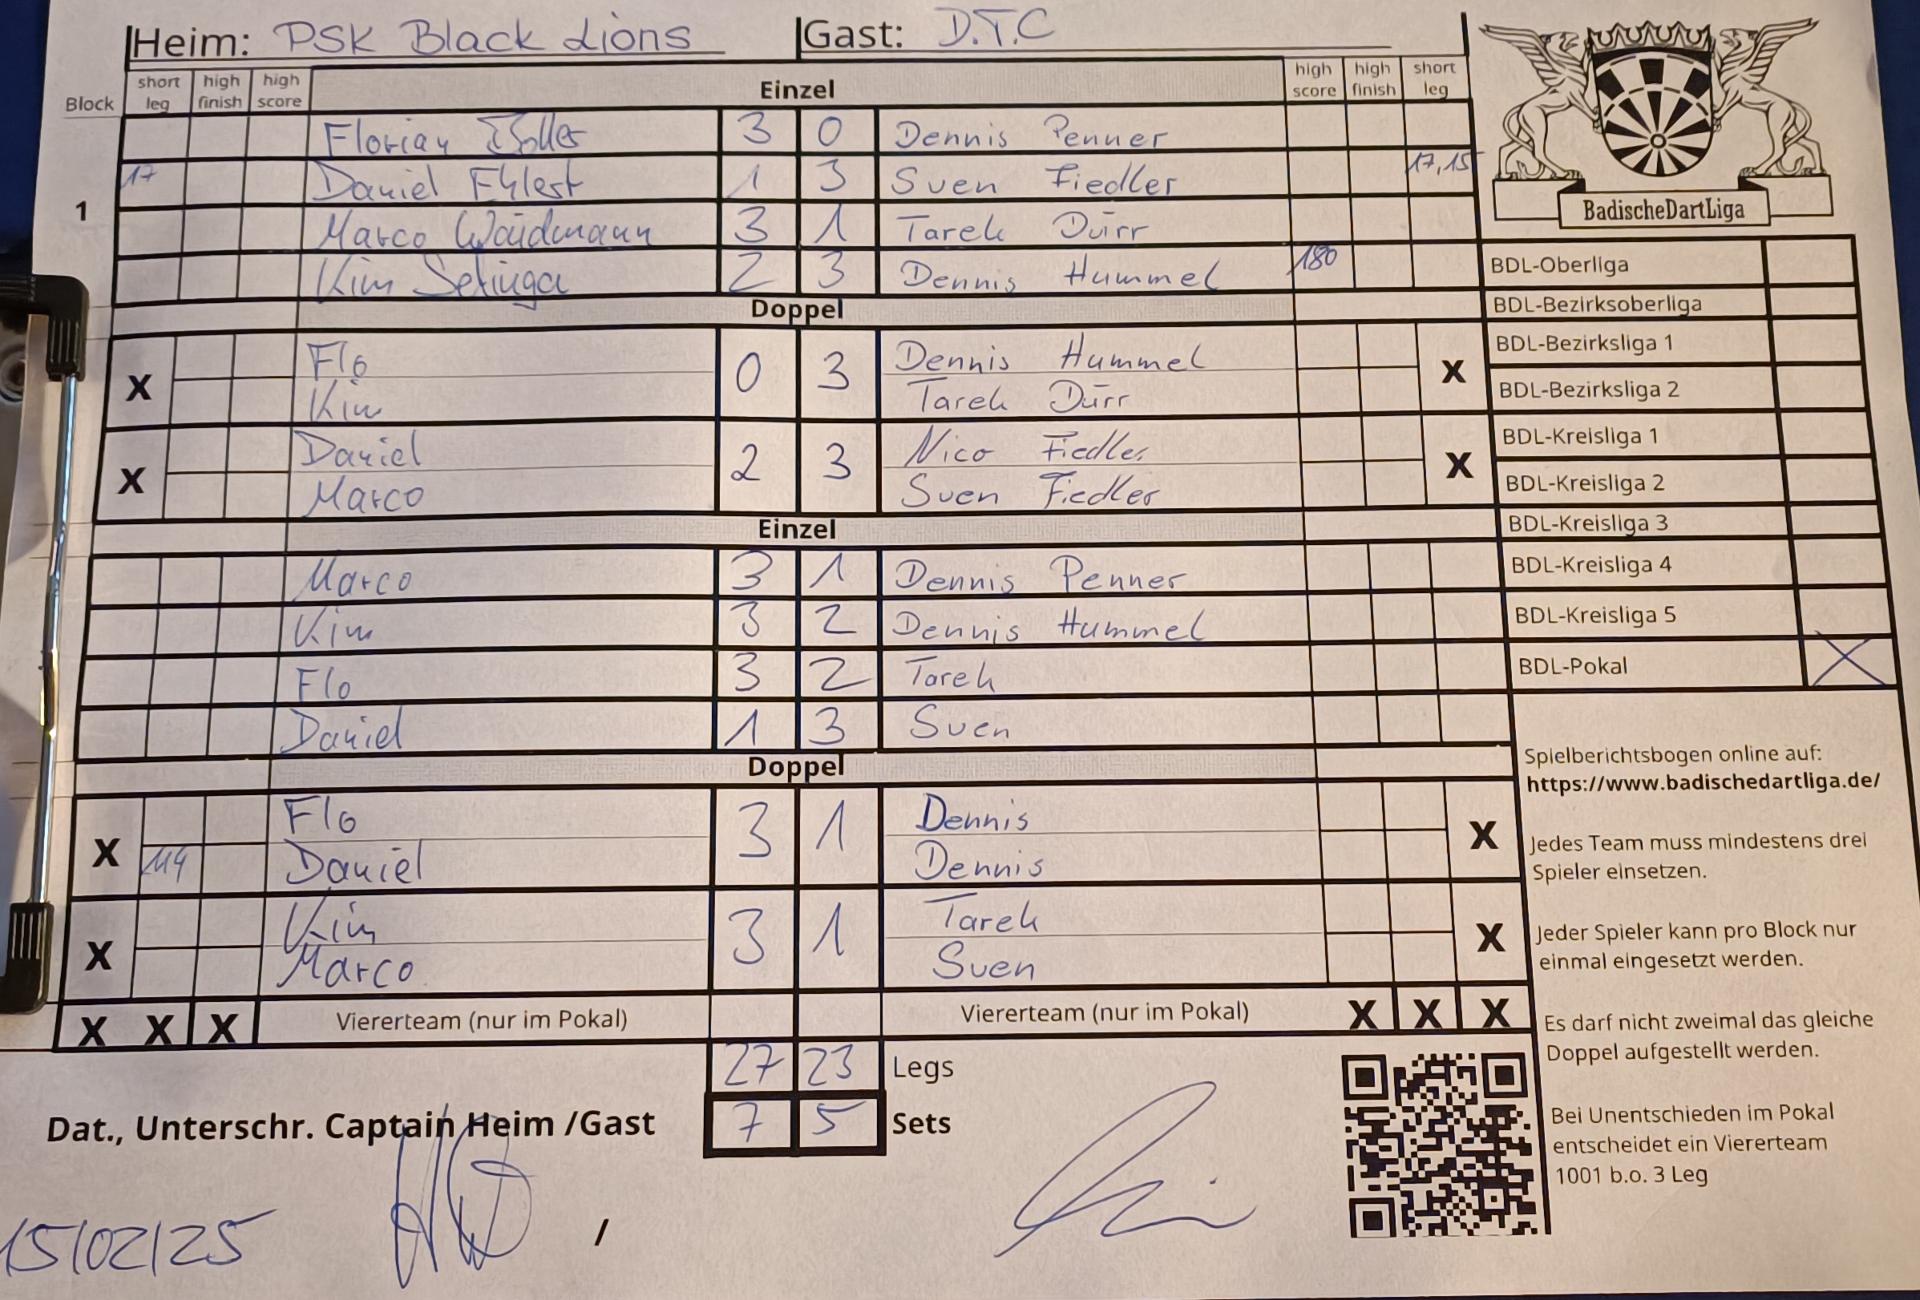 Heim: PSK Black Lions Gast: D.T.C
Block short leg high finish high score Einzel high score high finish short leg
Florian 3 0 Dennis Penner
17 Daniel 1 3 Sven Fiedler 17, 15
1
Marco Waidmann 3 1 Tarek Dürr
Kim 2 3 Dennis Hummel 180
BadischeDartLiga
Doppel
Flo 0 3 Dennis Hummel
X X
Kim Tarek Dürr
Daniel 2 3 Nico Fiedler
X X
Marco Sven Fiedler
Einzel
Marco 3 1 Dennis Penner
Kim 3 2 Dennis Hummel
Flo 3 2 Tarek
Daniel 1 3 Sven
Doppel
Flo 3 1 Dennis
X X
114 Daniel Dennis
Kim 3 1 Tarek
X X
Marco Sven
X X X Viererteam (nur im Pokal) Viererteam (nur im Pokal) X X X
27 23 Legs
7 5 Sets
Dat., Unterschr. Captain Heim /Gast
15/02/25 /
BDL-Oberliga
BDL-Bezirksoberliga
BDL-Bezirksliga 1
BDL-Bezirksliga 2
BDL-Kreisliga 1
BDL-Kreisliga 2
BDL-Kreisliga 3
BDL-Kreisliga 4
BDL-Kreisliga 5
BDL-Pokal X
Spielberichtsbogen online auf:
https://www.badischedartliga.de/
Jedes Team muss mindestens drei
Spieler einsetzen.
Jeder Spieler kann pro Block nur
einmal eingesetzt werden.
Es darf nicht zweimal das gleiche
Doppel aufgestellt werden.
Bei Unentschieden im Pokal
entscheidet ein Viererteam
1001 b.o. 3 Leg